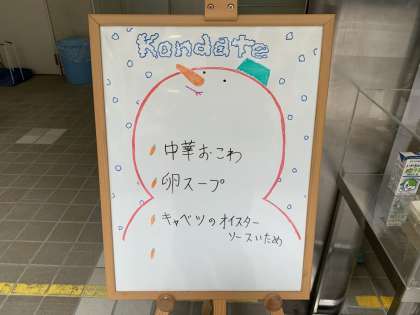 Kondate
中華おこわ
卵スープ
キャベツのオイスター
ソースいため